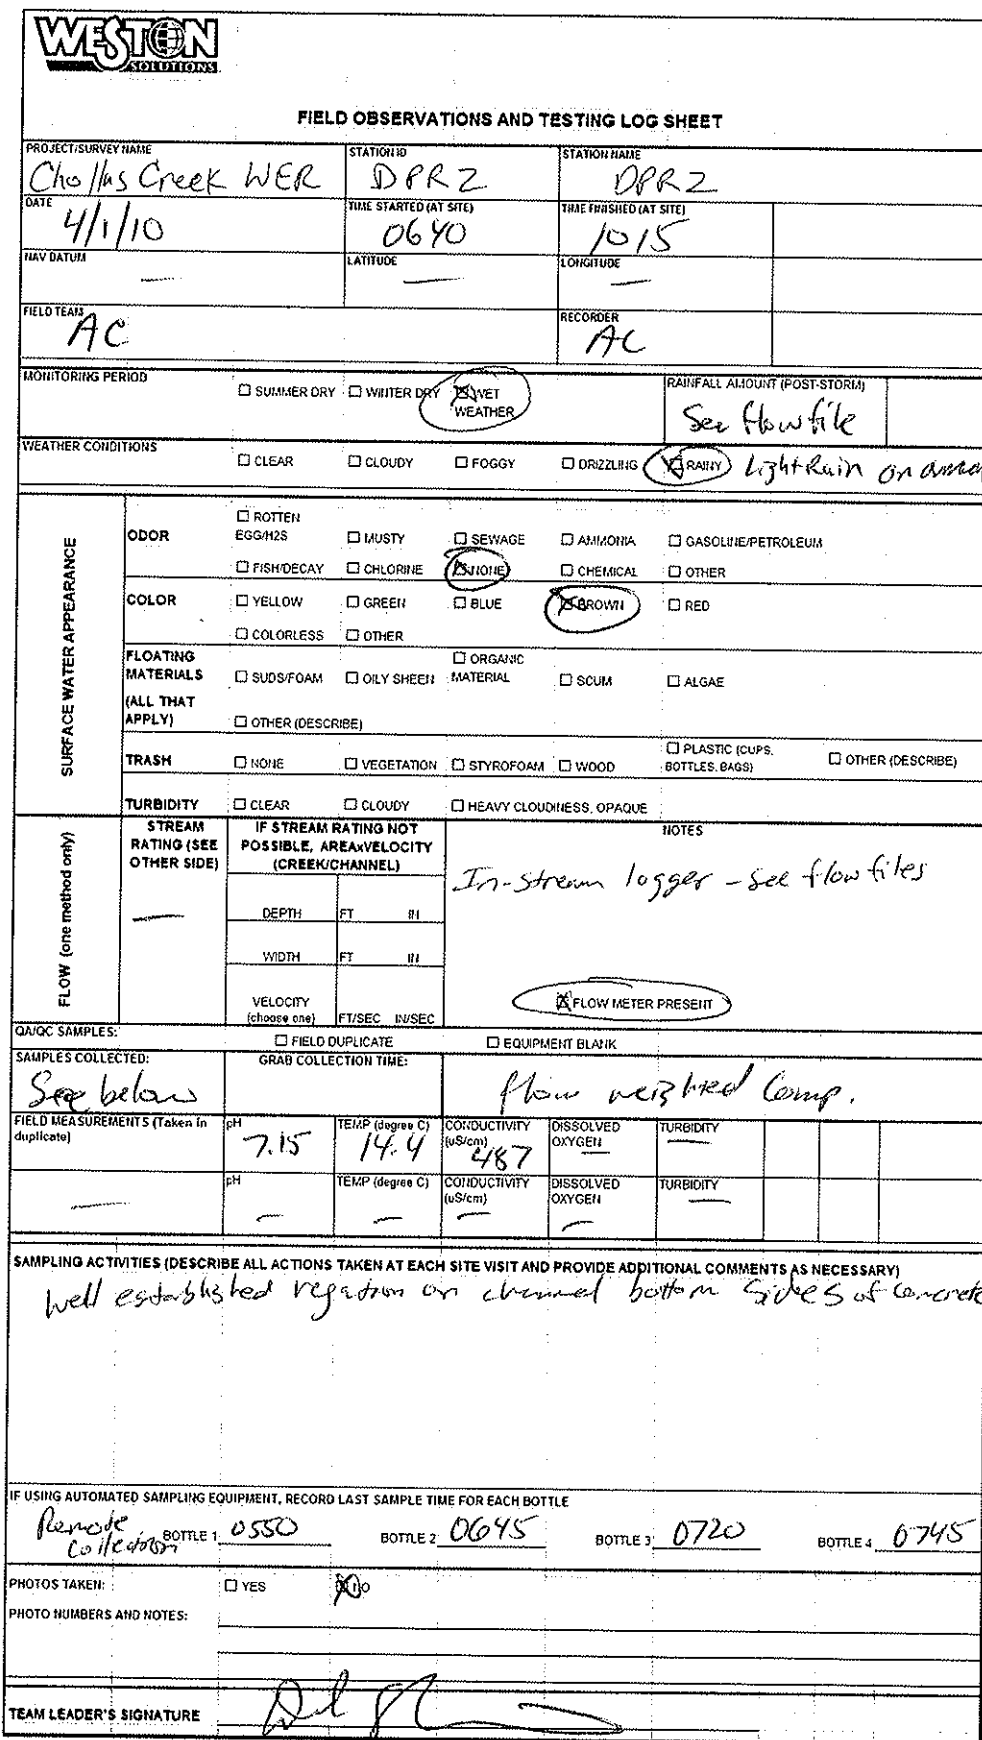 WESTON
SOLUTIONS
FIELD OBSERVATIONS AND TESTING LOG SHEET
PROJECT/SURVEY NAME STATION ID STATION NAME
Chollas Creek WER DPR2 DPR2
DATE TIME STARTED (AT SITE) TIME FINISHED (AT SITE)
4/1/10 0640 1015
NAV DATUM LATITUDE LONGITUDE
— — —
FIELD TEAM RECORDER
AC AC
MONITORING PERIOD ☐ SUMMER DRY ☐ WINTER DRY ☒ WET WEATHER RAINFALL AMOUNT (POST-STORM)
See flow file
WEATHER CONDITIONS ☐ CLEAR ☐ CLOUDY ☐ FOGGY ☐ DRIZZLING ☒ RAINY Light Rain on
SURFACE WATER APPEARANCE
ODOR ☐ ROTTEN EGG/H2S ☐ MUSTY ☐ SEWAGE ☐ AMMONIA ☐ GASOLINE/PETROLEUM
☐ FISH/DECAY ☐ CHLORINE ☒ NONE ☐ CHEMICAL ☐ OTHER
COLOR ☐ YELLOW ☐ GREEN ☐ BLUE ☒ BROWN ☐ RED
☐ COLORLESS ☐ OTHER
FLOATING MATERIALS (ALL THAT APPLY) ☐ SUDS/FOAM ☐ OILY SHEEN ☐ ORGANIC MATERIAL ☐ SCUM ☐ ALGAE
☐ OTHER (DESCRIBE)
TRASH ☐ NONE ☐ VEGETATION ☐ STYROFOAM ☐ WOOD ☐ PLASTIC (CUPS, BOTTLES, BAGS) ☐ OTHER (DESCRIBE)
TURBIDITY ☐ CLEAR ☐ CLOUDY ☐ HEAVY CLOUDINESS, OPAQUE
FLOW (one method only)
STREAM RATING (SEE OTHER SIDE) IF STREAM RATING NOT POSSIBLE, AREAxVELOCITY (CREEK/CHANNEL) NOTES
— In-stream logger - see flow files
DEPTH FT IN
WIDTH FT IN
VELOCITY (choose one) FT/SEC IN/SEC ☒ FLOW METER PRESENT
QA/QC SAMPLES: ☐ FIELD DUPLICATE ☐ EQUIPMENT BLANK
SAMPLES COLLECTED: GRAB COLLECTION TIME:
See below flow weighted Comp.
FIELD MEASUREMENTS (Taken in duplicate) pH TEMP (degree C) CONDUCTIVITY (uS/cm) DISSOLVED OXYGEN TURBIDITY
7.15 14.4 487 — —
pH TEMP (degree C) CONDUCTIVITY (uS/cm) DISSOLVED OXYGEN TURBIDITY
— — — — — —
SAMPLING ACTIVITIES (DESCRIBE ALL ACTIONS TAKEN AT EACH SITE VISIT AND PROVIDE ADDITIONAL COMMENTS AS NECESSARY)
well established vegation on channel bottom sides of concrete
IF USING AUTOMATED SAMPLING EQUIPMENT, RECORD LAST SAMPLE TIME FOR EACH BOTTLE
Remote Collection BOTTLE 1 0550 BOTTLE 2 0645 BOTTLE 3 0720 BOTTLE 4 0745
PHOTOS TAKEN: ☐ YES ☒ NO
PHOTO NUMBERS AND NOTES:
TEAM LEADER'S SIGNATURE